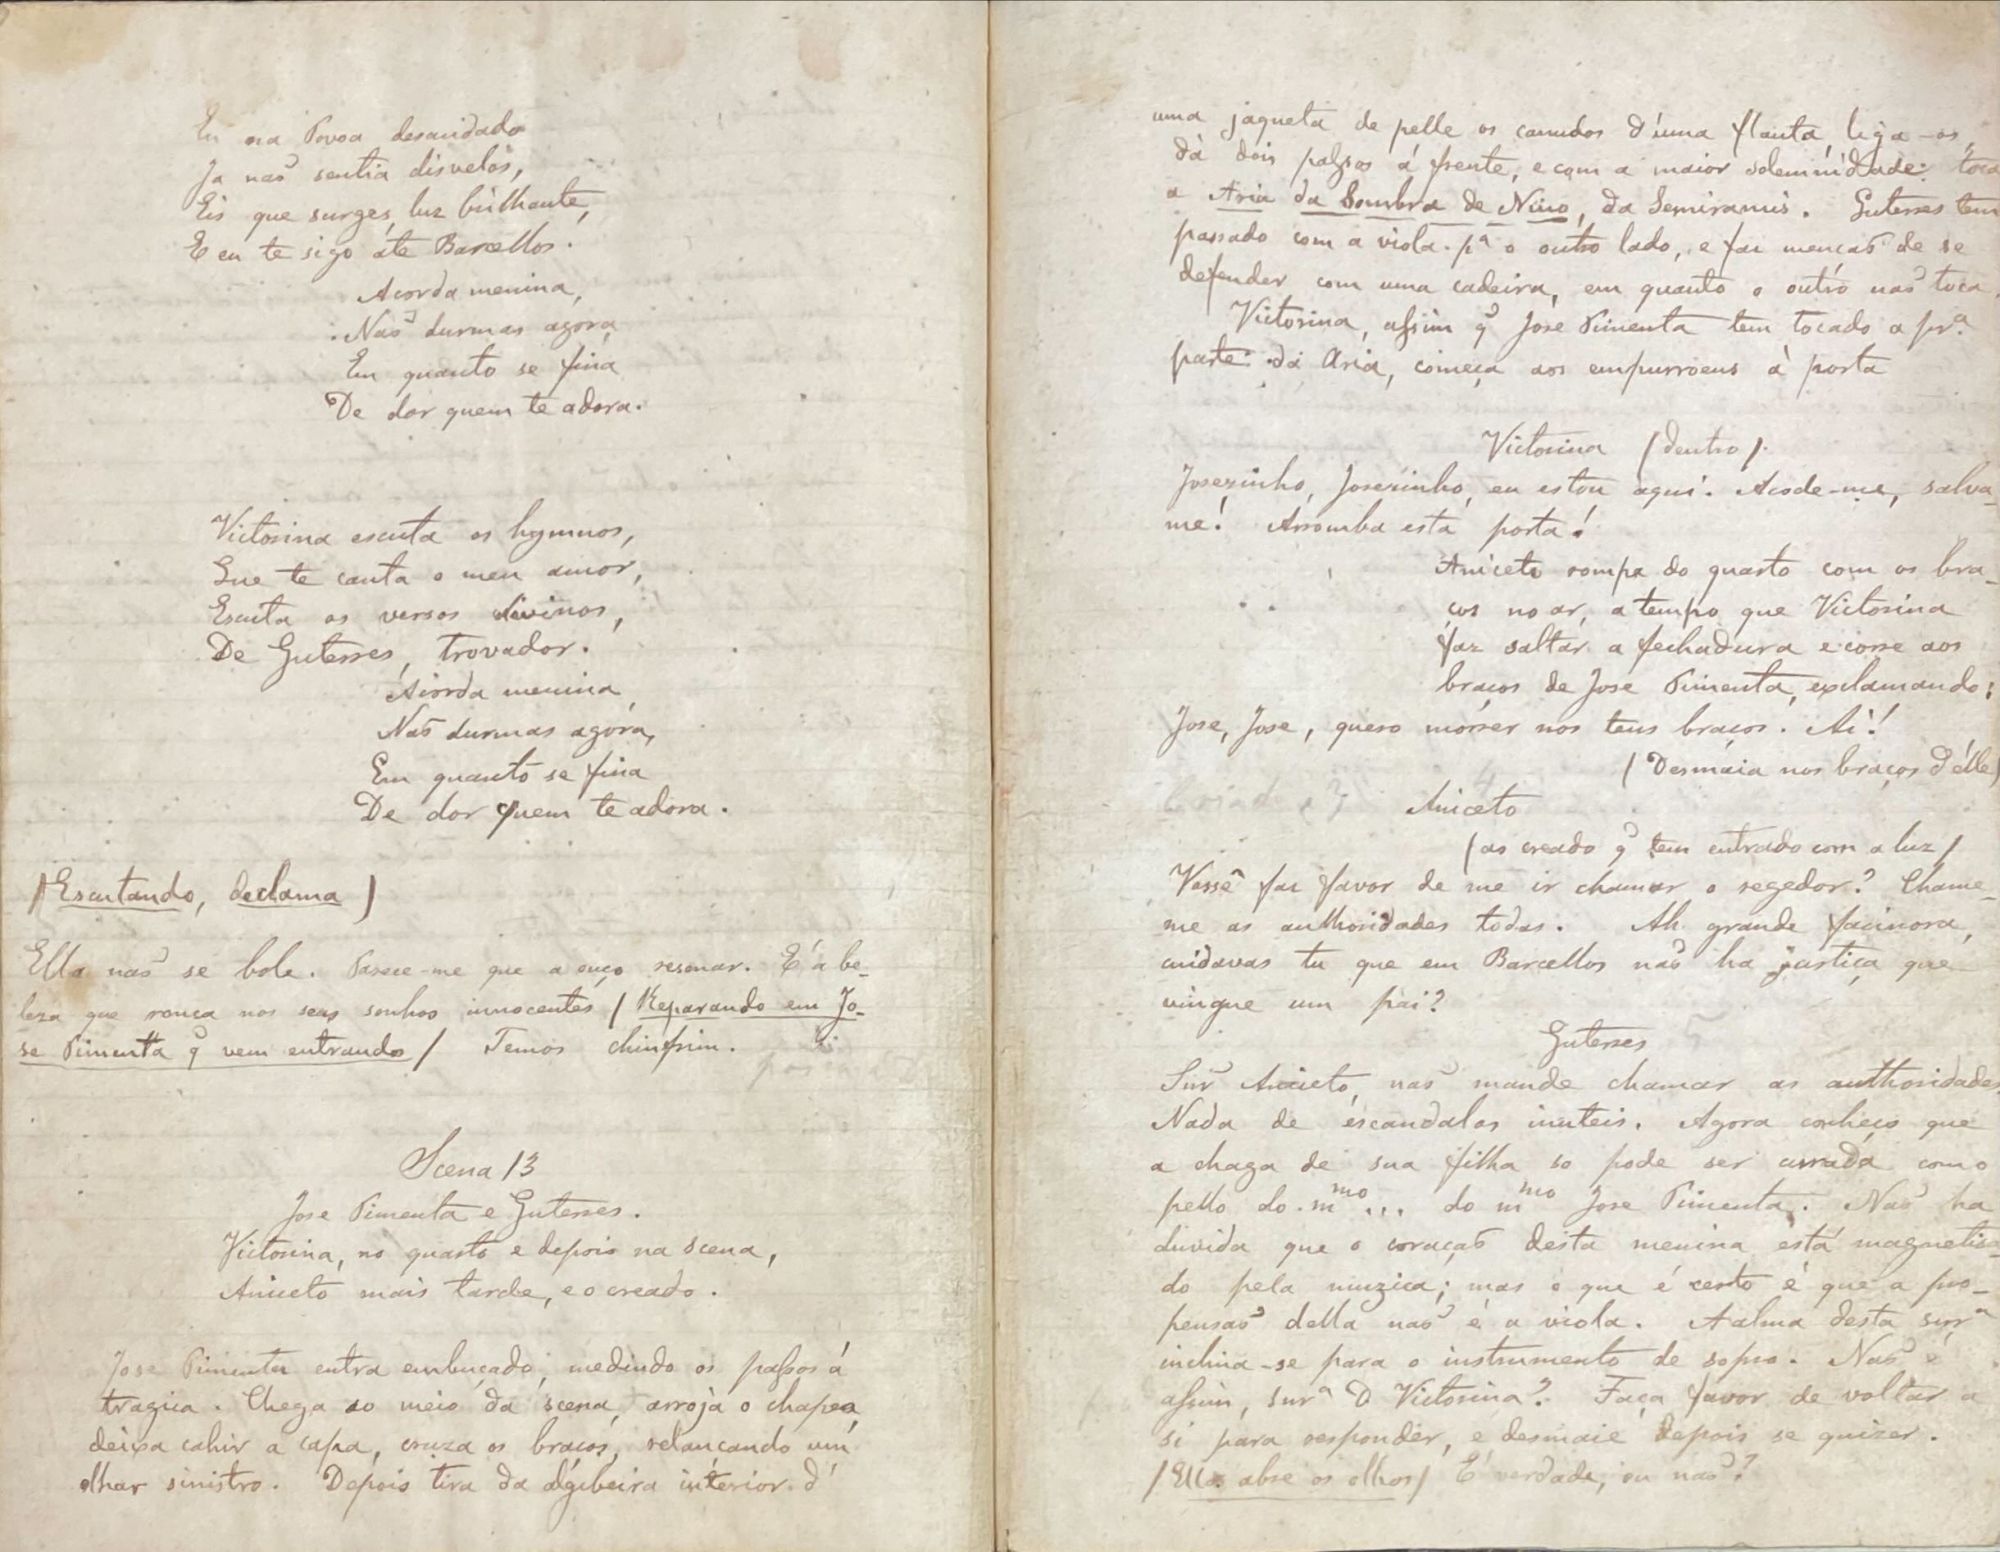 Eu na Povoa desaudado
Ja naõ sentia disvelos,
Eis que surges, luz brilhante,
E eu te sigo até Barcellos.
Acorda menina,
Naõ durmas agora
Em quanto se fina
De dor quem te adora.
Victorina escuta os hymnos,
Que te canta o meu amor,
Escuta os versos divinos,
De Guterres, trovador.
Acorda menina
Naõ durmas agora,
Em quanto se fina
De dor quem te adora.
/Escutando, declama/
Ella naõ se bole. Parece-me que a ouço resonar. E' a be-
leza que ronca nos seus sonhos innocentes /Reparando em Jo-
se Pimenta q̃ vem entrando/ Temos chinfrim.
Scena 13
Jose Pimenta e Guterres.
Victorina, no quarto e depois na scena,
Aniceto mais tarde, e o creado.
Jose Pimenta entra embuçado, medindo os passos á
tragica. Chega ao meio da scena, arroja o chapeo,
deixa cahir a capa, cruza os braços, relançando um
olhar sinistro. Depois tira da algibeira interior d'
uma jaqueta de pelle os canudos d'uma flauta, liga-os,
dá dois passos á frente, e com a maior solemnidade toca
a Aria da Sombra de Nino, da Semiramis. Guterres tem
passado com a viola pª o outro lado, e faz mençaõ de se
defender com uma cadeira, em quanto o outro naõ toca.
Victorina, assim q̃ Jose Pimenta tem tocado a prª
parte da Aria, começa aos empurroens à porta
Victorina /dentro/.
Josezinho, Josezinho, eu estou aqui. Acode-me, salva-
me! Arromba esta porta!
Aniceto rompe do quarto com os bra-
ços no ar, a tempo que Victorina
faz saltar a fechadura e corre aos
braços de Jose Pimenta, exclamando:
Jose, Jose, quero morrer nos teus braços. Ai!
/Desmaia nos braços d'elle/
Aniceto
/ao creado q̃ tem entrado com a luz/
Vossê faz favor de me ir chamar o regedor? Chame-
me as authoridades todas. Ah grande facinora,
cuidavas tu que em Barcellos naõ ha justiça que
vingue um pai?
Guterres
Snr Aniceto, naõ mande chamar as authoridades
Nada de escandalos inuteis. Agora conheço que
a chaga de sua filha so pode ser curada com o
pello do mmo... do mmo Jose Pimenta. Naõ ha
duvida que o coraçaõ desta menina está magnetisa-
do pela muzica; mas o que é certo é que a pro-
pensaõ della naõ é a viola. A alma desta snrª
inclina-se para o instrumento de sopro. Naõ é
assim, snrª D Victorina? Faça favor de voltar a
si para responder, e desmaie depois se quizer.
/Ella abre os olhos/ E' verdade, ou naõ?